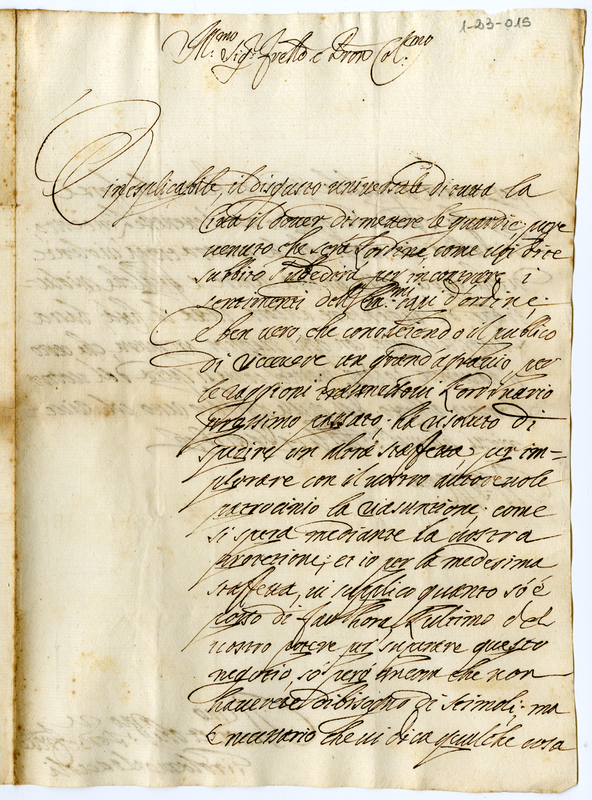 1-23-015
Ill:mo Sig:r Fratello e Pron Col:mo
È inesplicabile, il disgusto universale di tutta la
Città il dover dismettere le guardie, pure
venuto che sarà l'ordine, come ogi dite
subbito s'ubedirà per incontrare i
sentimenti dell' d'ordine;
È ben vero, che conoscendo il publico
di ricevere un grand'agravio per
le raggioni trasmessovi l'ordinario
prossimo passato, ha risoluto di
spedire un altra staffetta, per im=
plorare con il vostro autorevole
patrocinio la riassunzione, come
si spera mediante la vostra
protezione; et io per la medesima
staffetta, vi supplico quanto sò è
posso di far hora l'ultimo del
vostro potere per superare questo
negotio, sò però ancora che non
haverete di bisogno di stimoli; ma
è necessario che vi dica qualche cosa